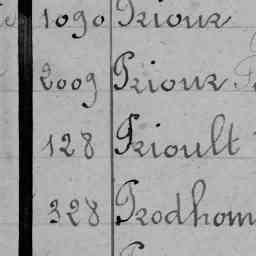 1090 Prioux
2009 Prioux
128 Prioult
328 Prodhom